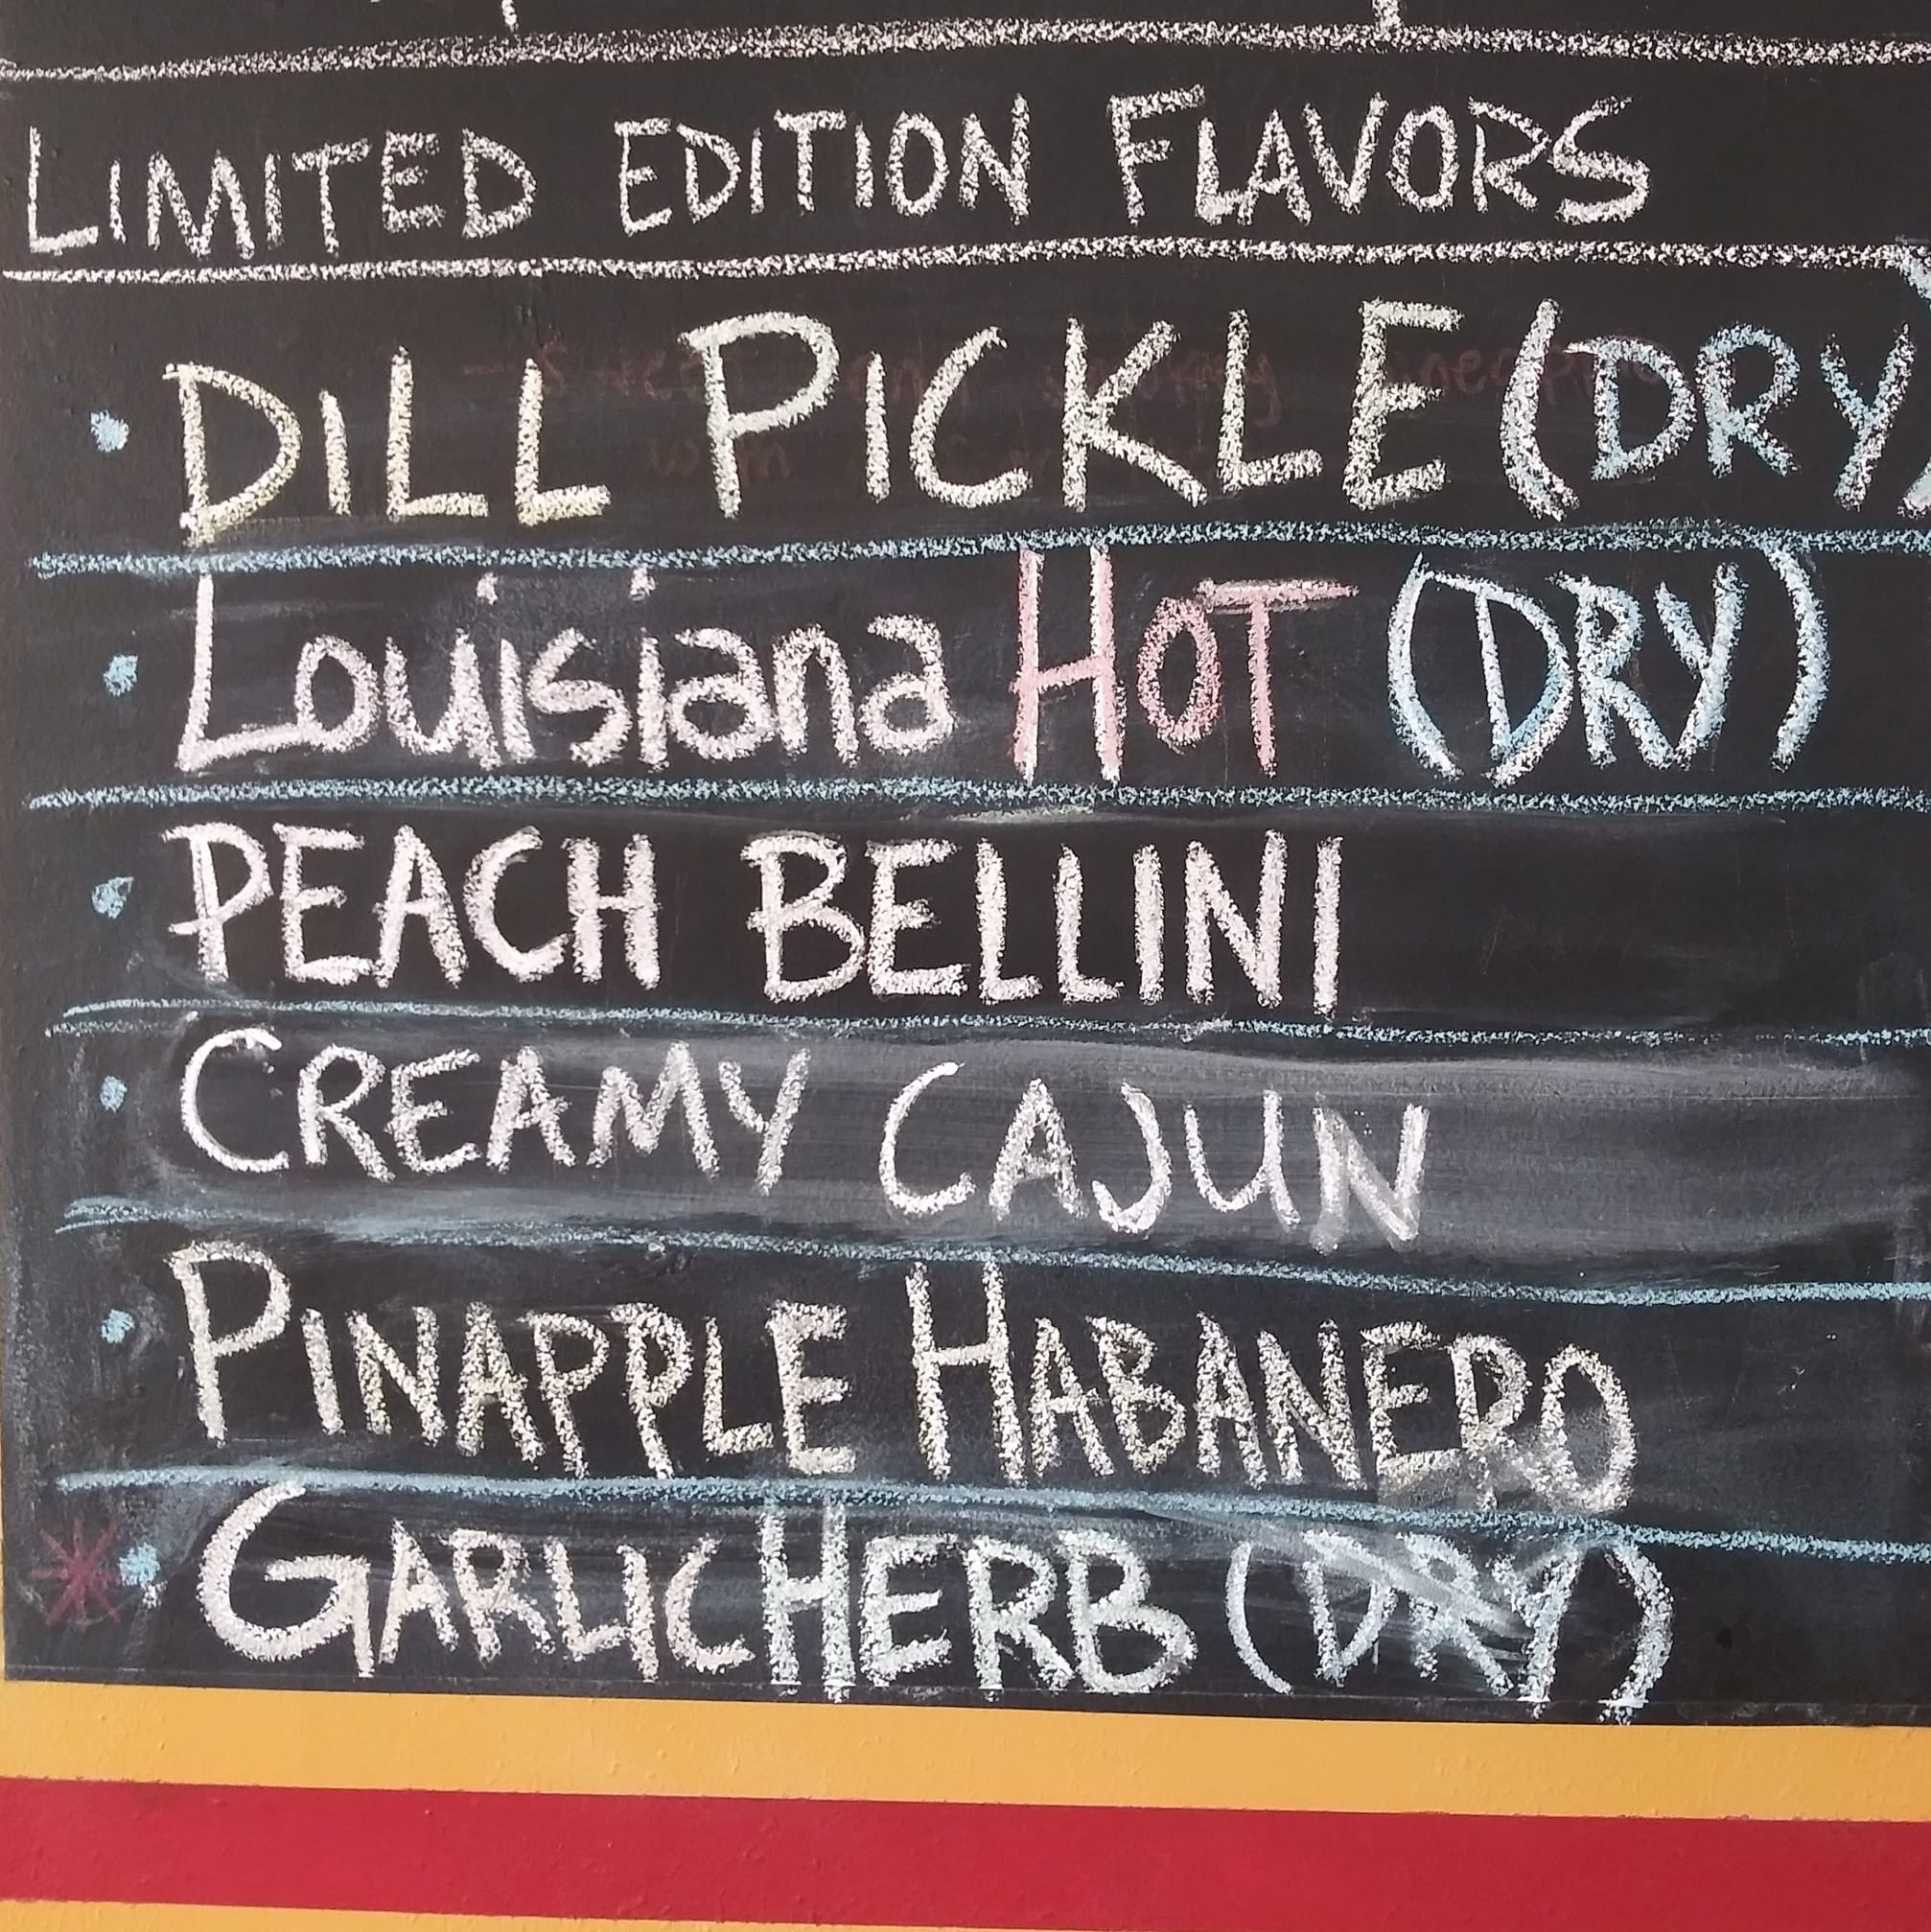 LIMITED EDITION FLAVORS
• DILL PICKLE (DRY)
• Louisiana HOT (DRY)
• PEACH BELLINI
• CREAMY CAJUN
• PINAPPLE HABANERO
* • GARLIC HERB (DRY)